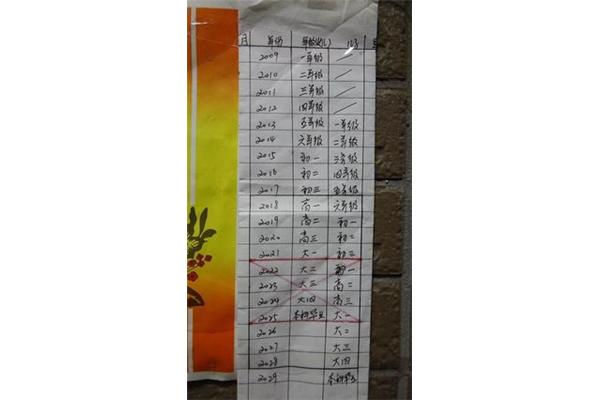 月 年份 年级
2009 一年级 /
2010 二年级 /
2011 三年级 /
2012 四年级 /
2013 五年级 一年级
2014 六年级 二年级
2015 初一 三年级
2016 初二 四年级
2017 初三 五年级
2018 高一 六年级
2019 高二 初一
2020 高三 初二
2021 大一 初三
2022 大二 初一
2023 大三 高二
2024 大四 高三
2025 本科毕业 大一
2026 大二
2027 大三
2028 大四
2029 本科毕业